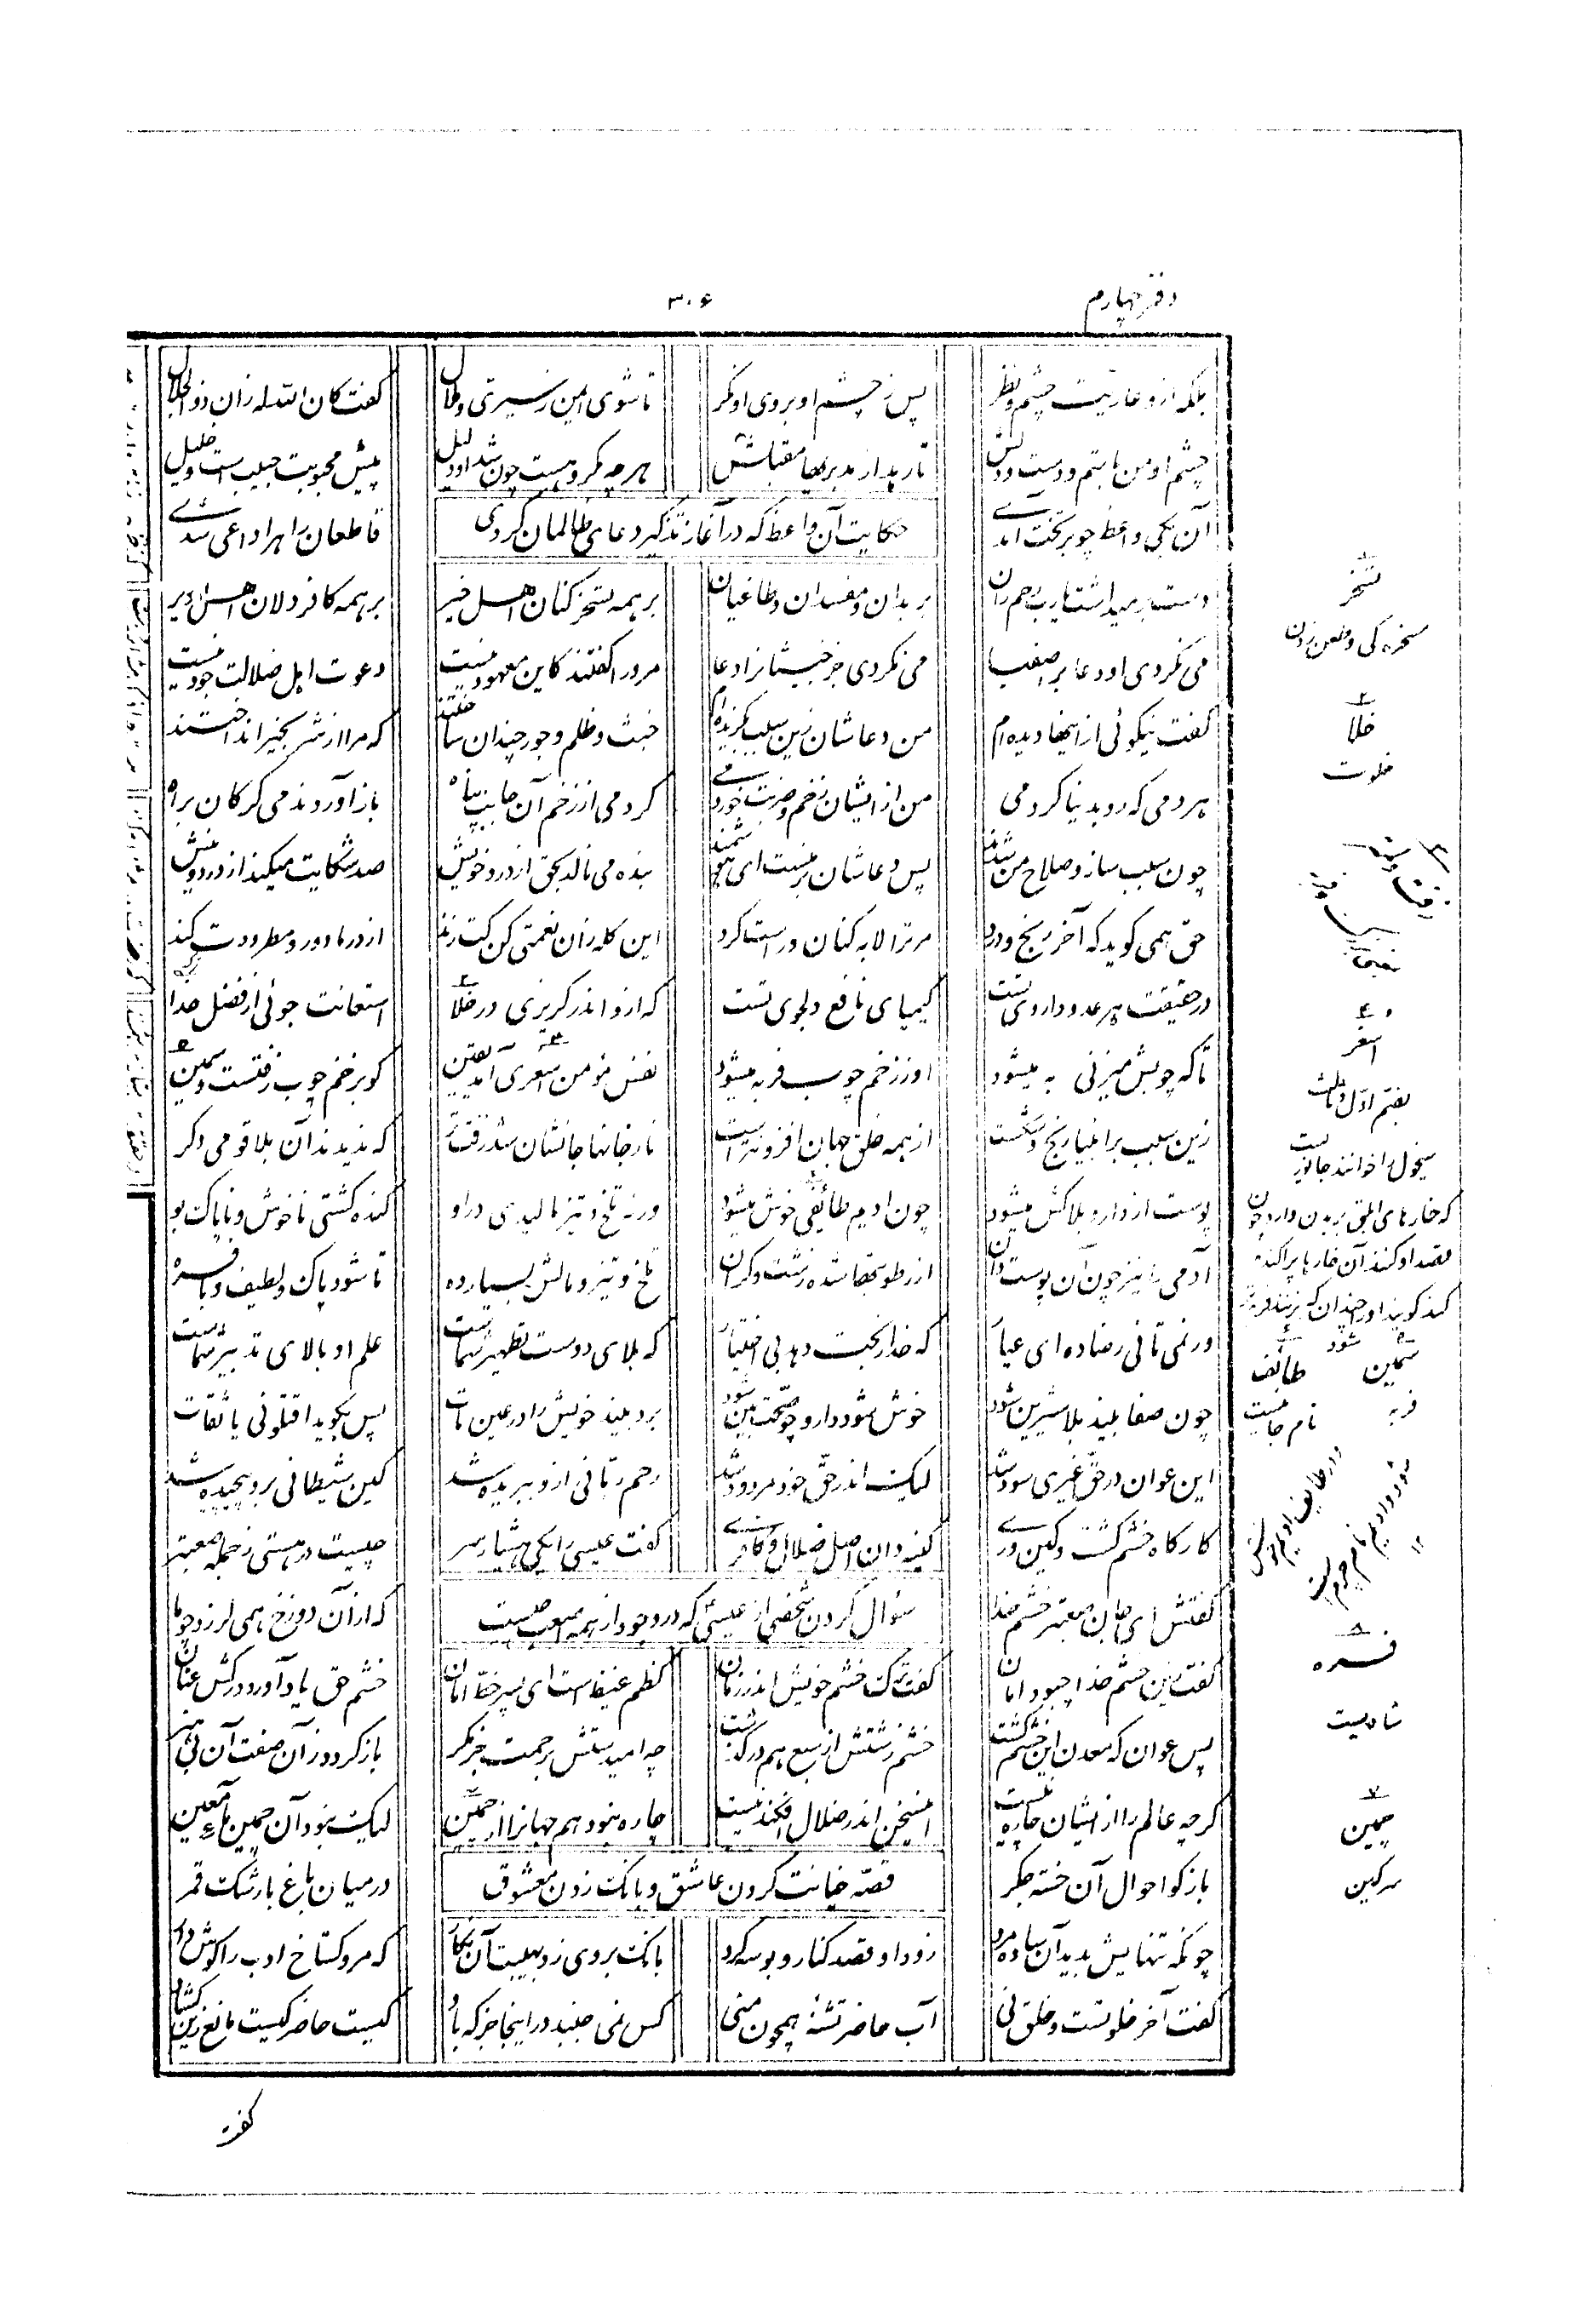 دفتر چهارم
۳۰۶
بلکه ازو عاریت چشم و نظر پس ز چشم او بروی او نگر تا شوی ایمن ز سیری و ملال گفت کان الله له زان ذو الجلال
چشم او من باشم و دست و دلش تا رهد از مدبریها مقبلش هر چه مکروهست چون شد او دلیل پیش محبوبت حبیب است و خلیل
حکایت آن واعظ که در آغاز تذکیر دعای ظالمان کردی
آن یکی واعظ چو بر تخت آمدی قاطعان راه را داعی شدی
دست برمیداشت یا رب رحم ران بر بدان و مفسدان و طاغیان بر همه تسخر کنان اهل خیر بر همه کافر دلان اهل دیر
می نکردی او دعا بر اصفیا می نکردی جز خبیثانرا دعا مرورا گفتند کاین معهود نیست دعوت اهل ضلالت جود نیست
گفت نیکوئی ازینها دیده‌ام من دعاشان زین سبب بگزیده‌ام خبث و ظلم و جور چندان ساختند که مرا از شر بخیر انداختند
هر دمی که رو بدنیا کردمی من ازیشان زخم و ضربت خوردمی کردمی از زخم آن جانب پناه باز آوردندمی گرگان براه
چون سبب ساز صلاح من شدند پس دعاشان بر منست ای هوشمند بنده می نالد بحق از درد خویش صد شکایت میکند از درد و نیش
حق همی گوید که آخر رنج و درد مر ترا لابه کنان و راست کرد این گله زان نعمتی کن کت زند از در ما دور و مطرودت کند
در حقیقت هر عدو داروی تست کیمیای نافع و دلجوی تست که ازو اندر گریزی در خلا استعانت جوئی از فضل خدا
تا که چوبش میزنی به میشود او ز زخم چوب فربه میشود نفس مؤمن اسغری آمد یقین کو بزخم چوب زفتست و سمین
زین سبب بر انبیا رنج و شکست از همه خلق جهان افزونتر است تا ز جانها جانشان شد زفت‌تر که ندیدند آن بلا قومی دگر
پوست از دارو بلاکش میشود چون ادیم طائفی خوش میشود ورنه تلخ و تیز مالیدی درو گنده گشتی ناخوش و ناپاک بو
آدمی را نیز چون آن پوست دان از رطوبتها شده زشت و گران تلخ و تیز و مالش بسیار ده تا شود پاک و لطیف و با فره
ور نمی تانی رضا ده ای عیار که خدا رنجت دهد بی اختیار که بلای دوست تطهیر شماست علم او بالای تدبیر شماست
چون صفا بیند بلا شیرین شود خوش شود دارو چو صحت بین شود برد بیند خویش را در عین مات پس بگوید اقتلونی یا ثقات
این عوان در حق غیری سود شد لیک اندر حق خود مردود شد رحم ربانی ازو ببریده شد کین شیطانی برو پیچیده شد
کارگاه خشم گشت و کین وری کینه دان اصل ضلال و کافری
سؤال کردن شخصی از عیسی که در وجود از همه صعب چیست
گفت عیسی را یکی هشیار سر چیست در هستی ز جمله صعب‌تر
گفتش ای جان صعبتر خشم خدا که از آن دوزخ همی لرزد چو ما
گفت زین خشم خدا چبود امان گفت ترک خشم خویش اندر زمان کظم غیظ است ای پسر خط امان خشم حق یاد آور و درکش عنان
پس عوان که معدن این خشم گشت خشم زشتش از سبع هم در گذشت چه امیدستش برحمت جز مگر باز گردد زان صفت آن بی هنر
گرچه عالم را ازیشان چاره نیست این سخن اندر ضلال افکند نیست چاره نبود هم جهانرا از چمین لیک نبود آن چمین ماء معین
قصه خیانت کردن عاشق و بانگ زدن معشوق
باز گو احوال آن خسته جگر در میان باغ با رشک قمر
چونکه تنهایش بدید آن ساده مرد زود او قصد کنار و بوسه کرد بانگ بر وی زد بهیبت آن نگار که مرو گستاخ ادب را گوش دار
گفت آخر خلوتست و خلق نی آب حاضر تشنهٔ همچون منی کس نمی جنبد در اینجا جز که باد کیست حاضر کیست مانع زین گشاد
گفت
تسخر
سخره‌گی و طعن زدن
خلا
خلوت
اسغر
بضم اول و ثالث
سیخول را خوانند جانوریست
که خارهای ابلق بر بدن دارد چون
قصد او کنند آن خارها پراکنده
شود
سمین
فربه
طائف
نام جائیست
فره
شادیست
چمین
سرگین